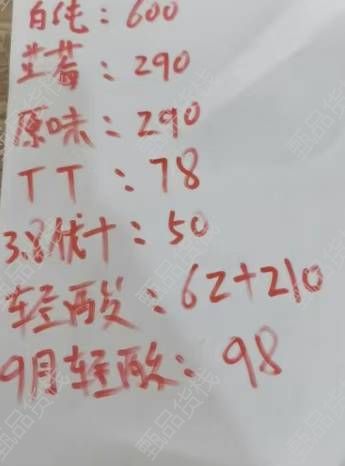 白纯：600
蓝莓：290
原味：290
TT：78
3.8优十：50
轻酸：62+210
9月轻酸：98
甄品货栈